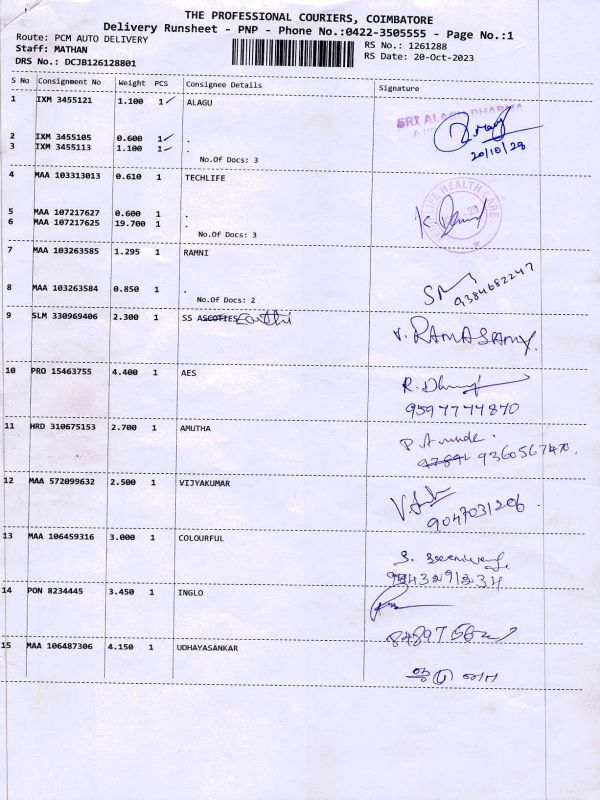 THE PROFESSIONAL COURIERS, COIMBATORE
Delivery Runsheet - PNP - Phone No.:0422-3505555 - Page No.:1
Route: PCM AUTO DELIVERY
Staff: MATHAN
DRS No.: DCJB126128801
RS No.: 1261288
RS Date: 20-Oct-2023
S No Consignment No Weight PCS Consignee Details Signature
1 IXM 3455121 1.100 1 ALAGU
SRI ALAGU PHARMA
2 IXM 3455105 0.600 1 .
3 IXM 3455113 1.100 1 .
20/10/23
No.Of Docs: 3
4 MAA 103313013 0.610 1 TECHLIFE
LIFE HEALTH CARE
5 MAA 107217627 0.600 1 .
6 MAA 107217625 19.700 1 .
No.Of Docs: 3
7 MAA 103263585 1.295 1 RAMNI
8 MAA 103263584 0.850 1 .
9384682247
No.Of Docs: 2
9 SLM 330969406 2.300 1 SS ASCOTIES
V. RAMASAMY.
10 PRO 15463755 4.400 1 AES
9597777870
11 HRD 310675153 2.700 1 AMUTHA
9360567470.
12 MAA 572099632 2.500 1 VIJYAKUMAR
9047031206.
13 MAA 106459316 3.000 1 COLOURFUL
14 PON 8234445 3.450 1 INGLO
15 MAA 106487306 4.150 1 UDHAYASANKAR